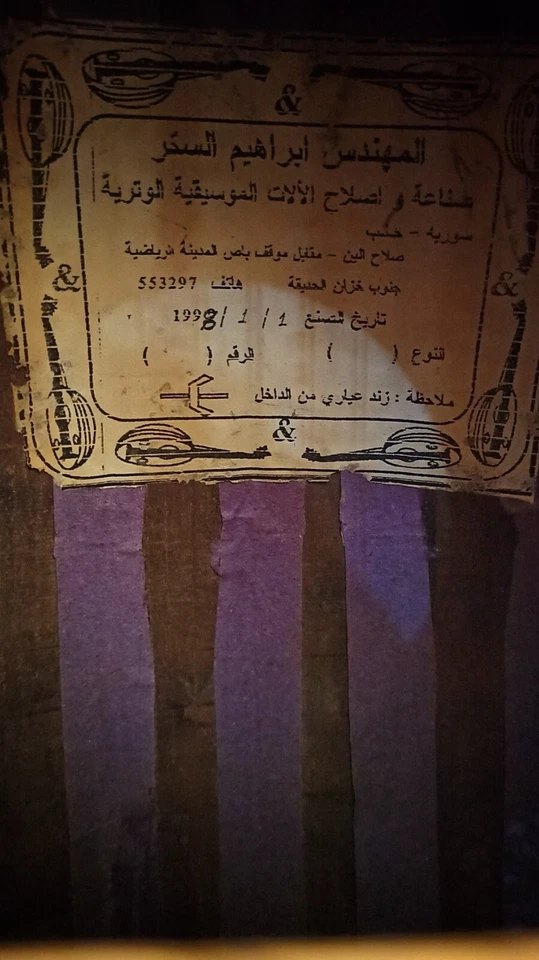 &
المهندس ابراهيم السكر
صناعة و اصلاح الآلات الموسيقية الوترية
سورية - حلب
صلاح الدين - مقابل موقف باص المدينة الرياضية
جنوب خزان الحديقة هاتف 553297
& &
تاريخ الصنع 1 / 1 / 1998
النوع ( ) الرقم ( )
ملاحظة : زند عياري من الداخل
&